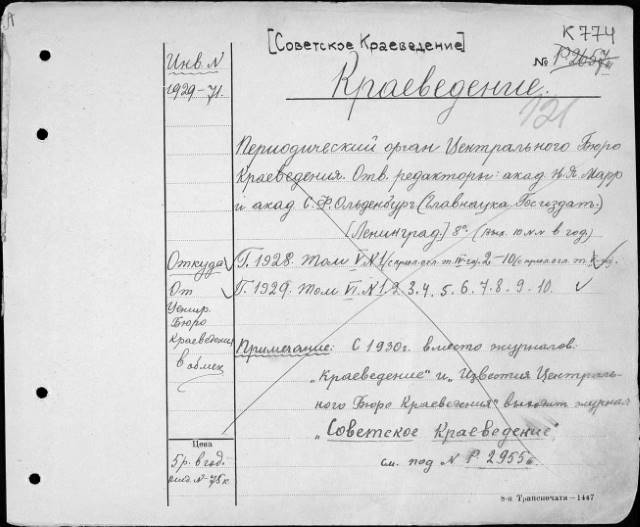 А
[Советское Краеведение]
К 774
Инв. N
1929-71.
№ Р2657
Краеведение.
121
Периодический орган Центрального Бюро
Краеведения. Отв. редакторы: акад. Н.Я. Марр
и акад. С.Ф. Ольденбург (Главнаука Госиздат.)
[Ленинград] 8°. (Вых. 10 NN в год.)
Откуда
Г. 1928. Том V. N 1 2-10
От
Г. 1929. Том VI. N 1. 2. 3. 4. 5. 6. 7. 8. 9. 10.
Центр.
Бюро
Краеведения
в обмен
Примечание: С 1930 г. вместо журналов:
„Краеведение" и „Известия Централь-
ного Бюро Краеведения" выходит журнал
„Советское Краеведение"
см. под N Р. 2955
Цена
5 р. в год.
8-я Транспечати—1447